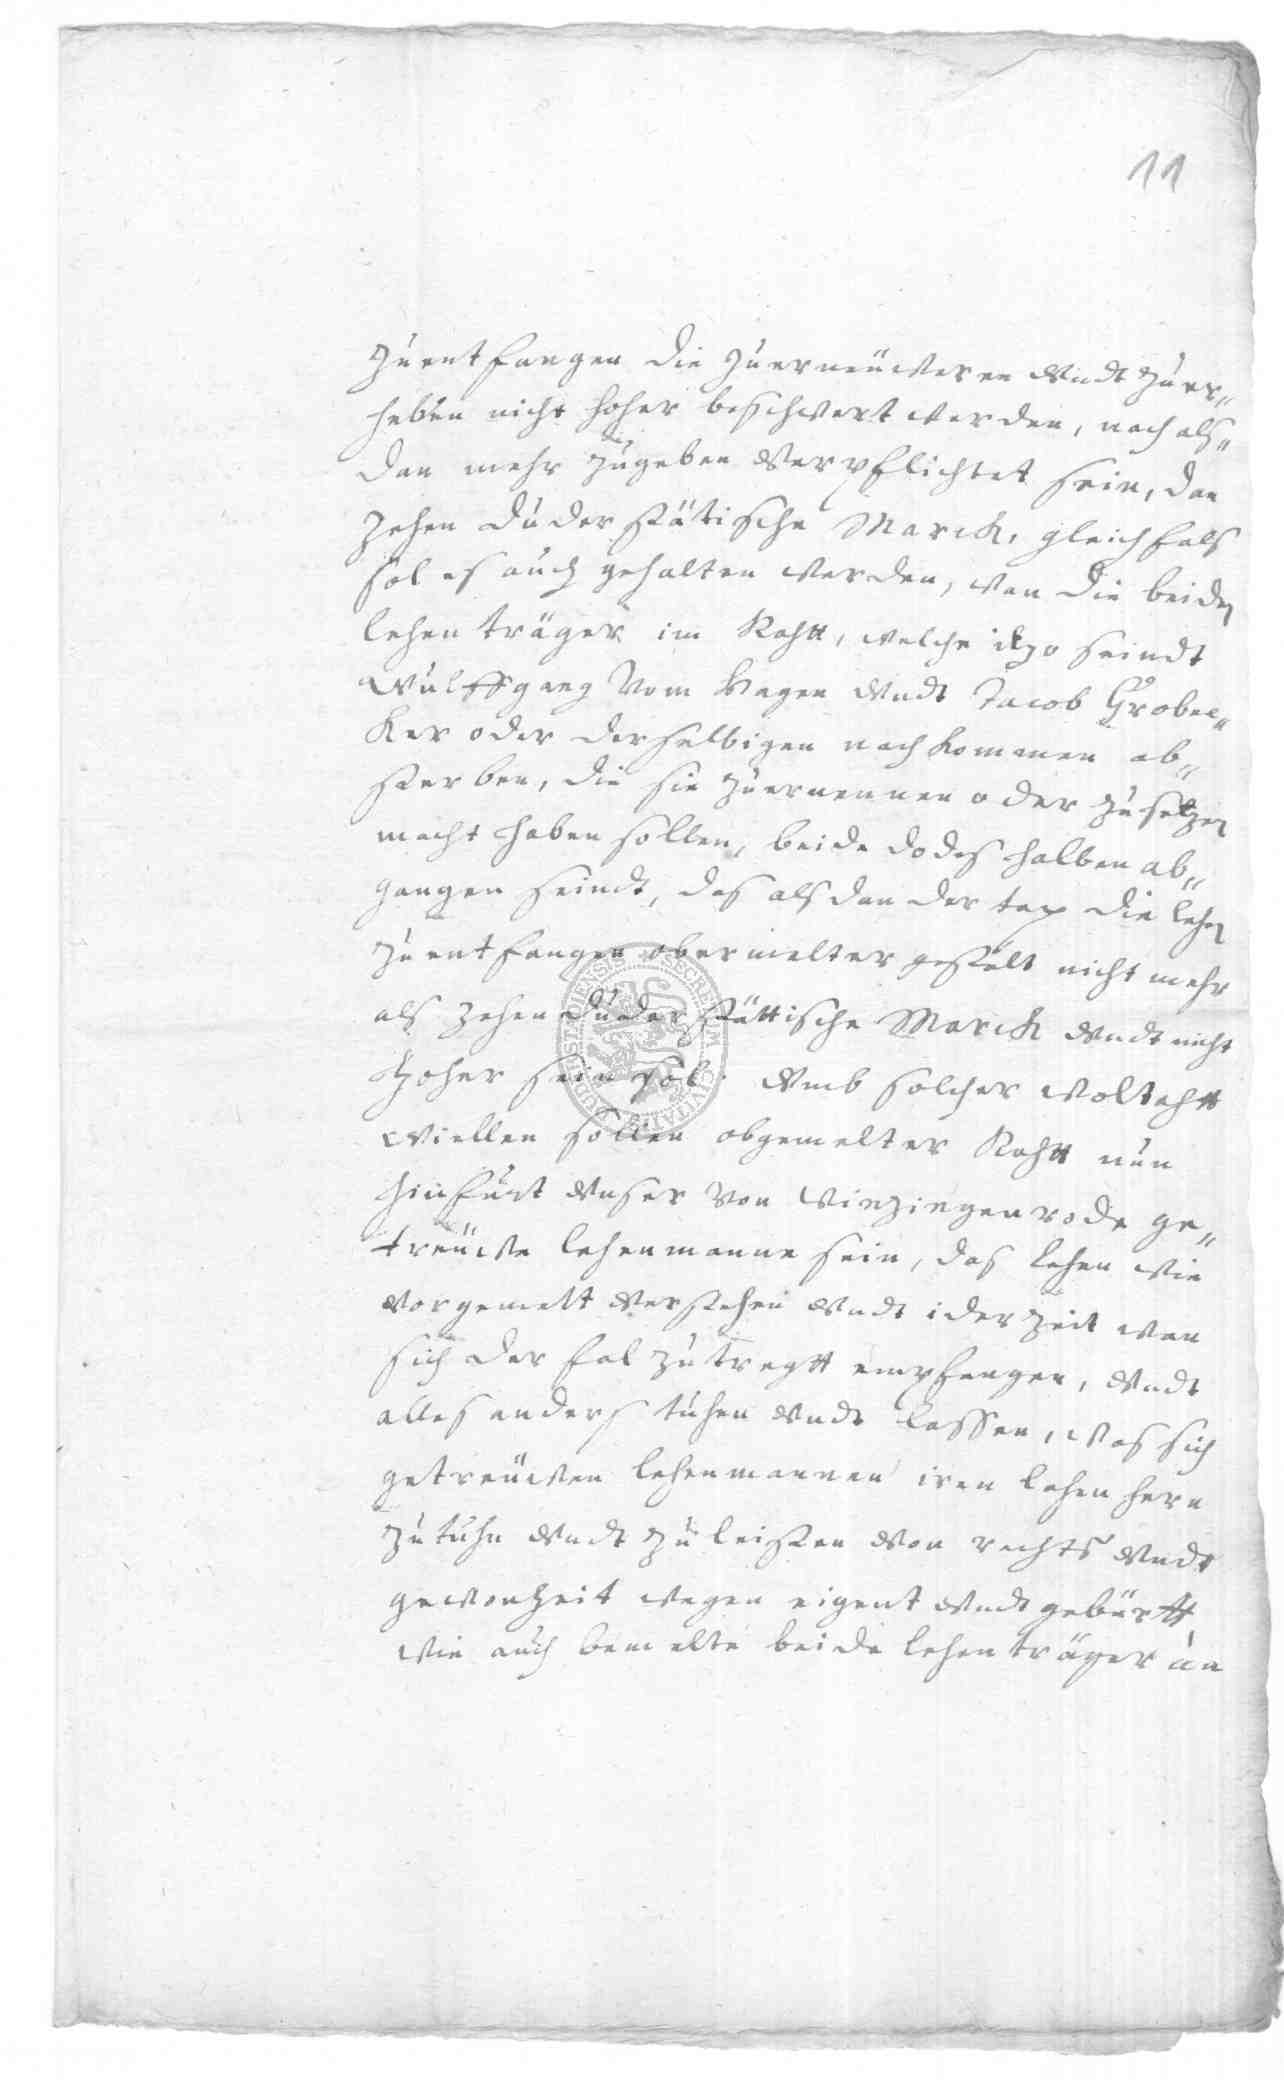 11
zu entfangen die zuerneüweren vndt zu er„
heben nicht hoher beschwert werden, noch als„
dan mehr zugeben verpflichtet sein, dan
zehen duderstätische Marck, gleichfals
sol es auch gehalten werden, wan die beiden
lehenträger im Rahtt, welche itzo seindt
Wulffgang Vom Hagen vndt Jacob Groben„
ker oder derselbigen nachkommen ab„
sterben, die sie zuernennen oder zusetzen
macht haben sollen, beide dodes halben ab„
gangen seindt, das alsdan der tax die lehen
zu entfangen obermelter gestalt nicht mehr
als zehen duderstättische Marck vndt nicht
hoher sein sol. vmb solcher woltahtt
wiellen sollen obgemelter Rahtt nun
hinfurt vnser Von Winzingenrode ge„
treüwe lehenmanne sein, das lehen wie
vorgemelt verstehen vndt ider zeit wan
sich der fal zutregtt empfangen, vndt
alles anders tuhen vndt lassen, was sich
getreüwen lehenmannen iren lehen hern
zutuhn vndt zu leisten von rechts vndt
gewonheit wegen eigent vndt gebürtt
wie auch bemelte beide lehenträger an
SECRETUM CIVITATIS DUDERSTADIENSIS